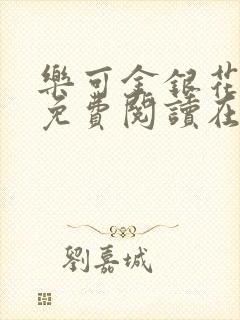 樂可金銀花
免費閱讀在
劉嘉城